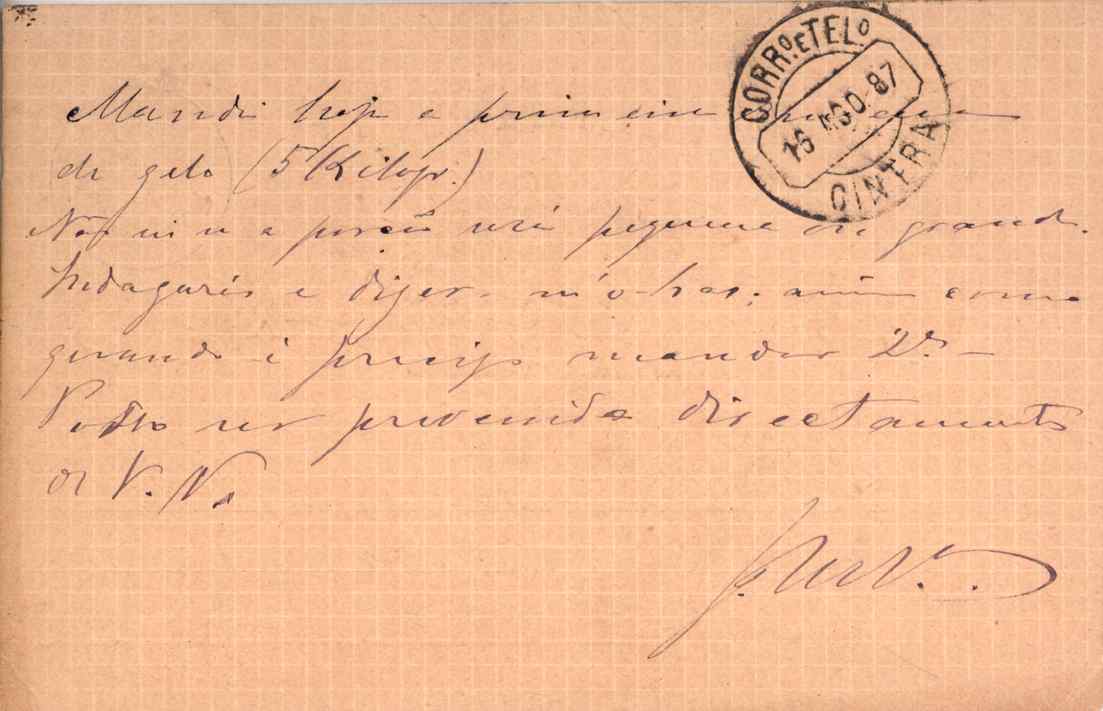 CORRO. E TELO.
16 AGO. 87
CINTRA
Mandei hoje a primeira
de gelo (5 Kilogr.)
Não sei se a porção será pequena ou grande.
Indagareis e dizer-m'o-has; assim como
quando é preciso mandar 2ª.—
Posso ser prevenido directamente
de V. N.